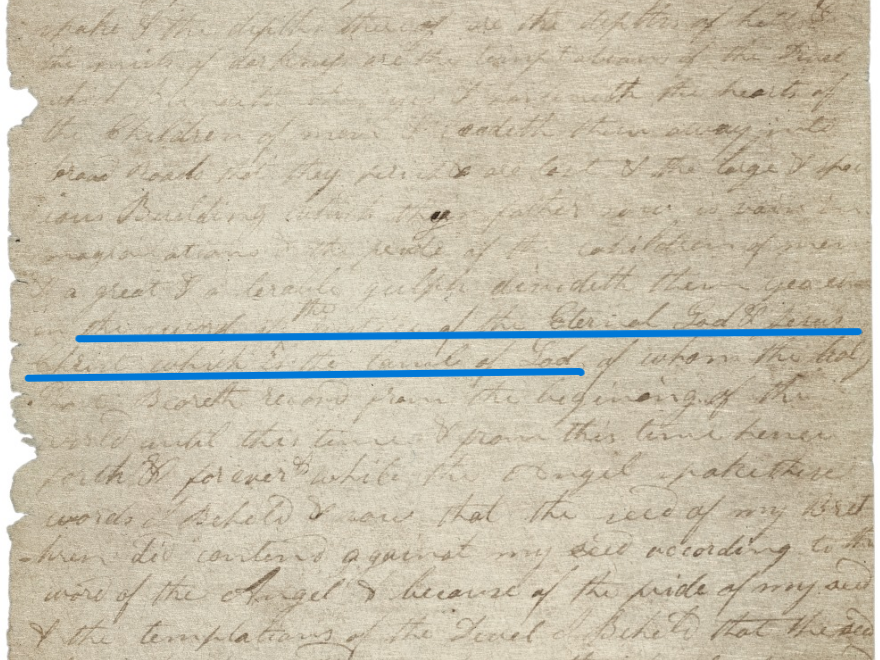 spake & the depths thereof are the depths of hell &
the mists of darkness are the temptations of the Devel
which the eyes & hardeneth the hearts of
the Children of men & leadeth them away into
broad roads that they perish & are lost & the large & spa
cious Building which thy father saw is vain im
maginations & the pride of the children of men
& a great & a terable gulph divideth them yea even
the word of the justice of the Eternal God & Jesus
Christ which is the lamb of God of whom the holy
beareth record from the begining of the
world until this time & from this time hence
forth & forever & while the Angel spake these
words I Beheld & saw that the seed of my Bret
hren did contend against my seed according to the
word of the Angel & because of the pride of my seed
& the temptations of the Devel I Beheld that the seed